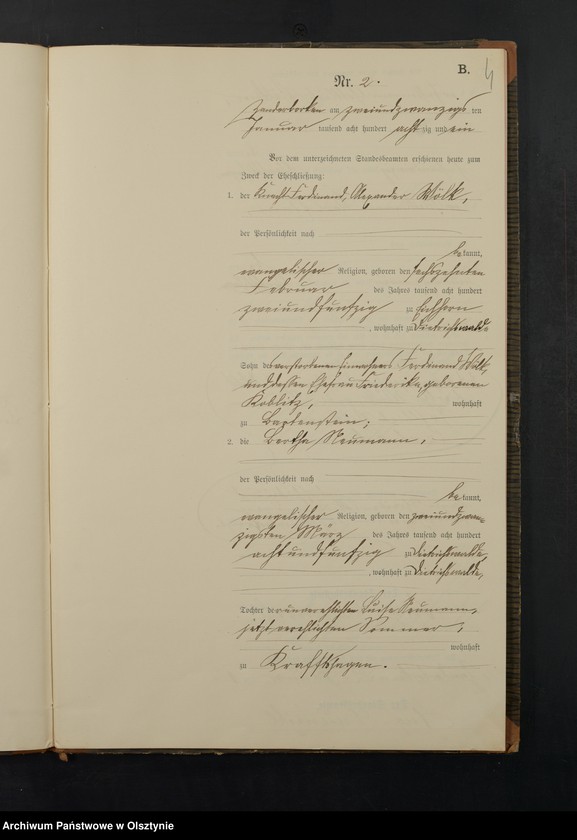 B.
4
Nr. 2.
Sanderborken am zweiundzwanzigs ten
Januar tausend acht hundert achtzig und ein
Vor dem unterzeichneten Standesbeamten erschienen heute zum
Zweck der Eheschließung:
1. der Knecht Ferdinand, Alexander Wölk,
der Persönlichkeit nach
be kannt,
evangelischer Religion, geboren den sechszehnten
Februar des Jahres tausend acht hundert
zweiundfunfzig zu Eichhorn
, wohnhaft zu Dietrichswalde
Sohn des verstorbenen Einwohners Ferdinand Wölk,
und dessen Ehefrau Friederike, geborenen
Koblitz, wohnhaft
zu Bartenstein;
2. die Bertha Neumann,
der Persönlichkeit nach
be kannt,
evangelischer Religion, geboren den zweiundzwan-
zigsten März des Jahres tausend acht hundert
achtundfunfzig zu Dietrichswalde,
, wohnhaft zu Dietrichswalde,
Tochter der unverehelichten Luise Neumann,
jetzt verehelichten Sommer,
wohnhaft
zu Kraftshagen.
Archiwum Państwowe w Olsztynie